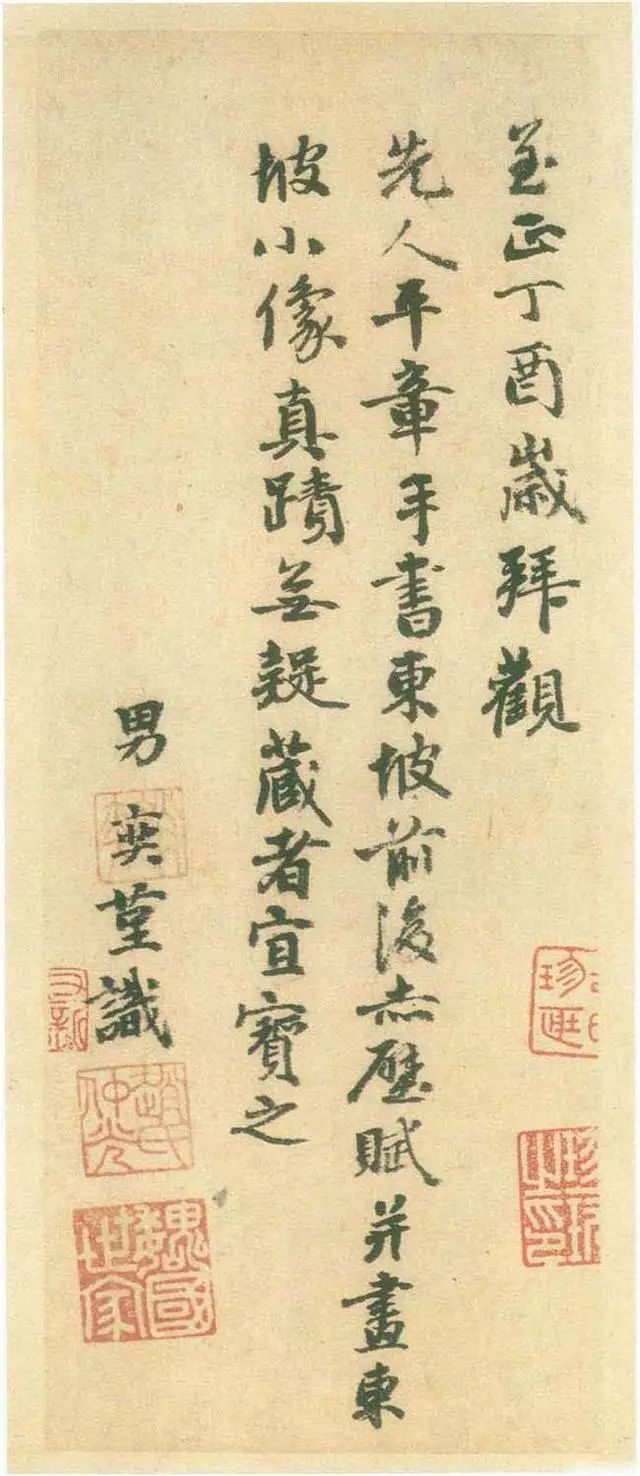 至正丁酉歲拜觀
先人平章手書東坡前後赤壁賦并畫東
坡小像真蹟無疑藏者宜寶之
男奕墓識
趙氏仲光
魏國世家